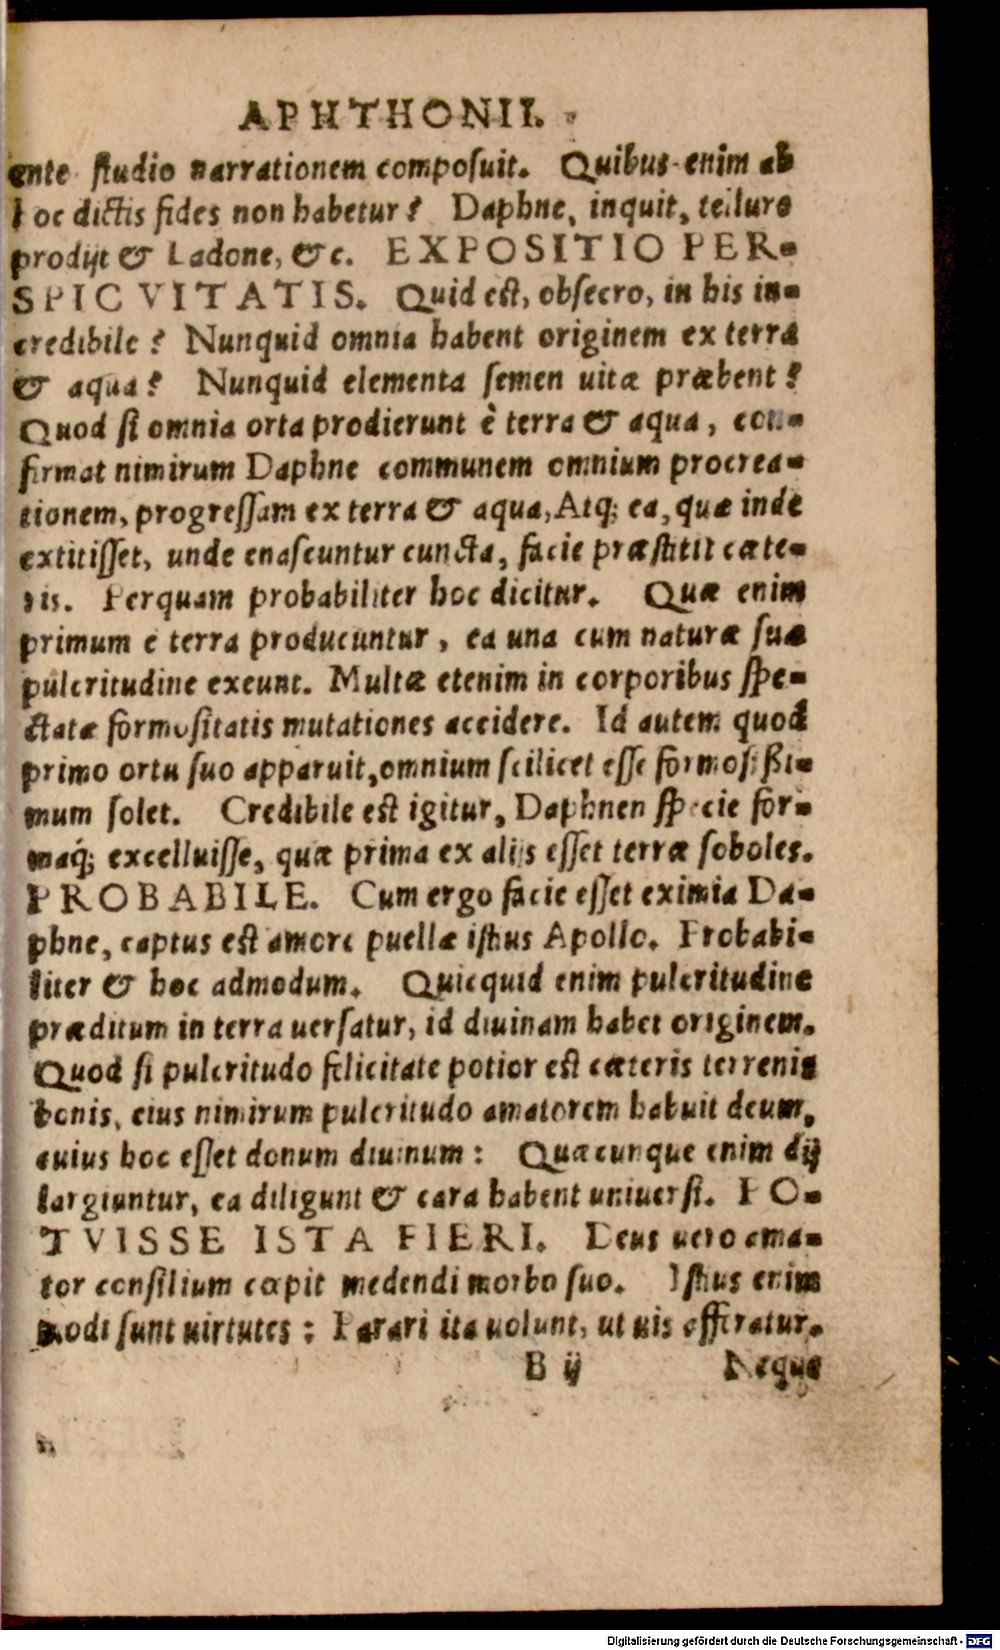 APHTHONII.
ente studio narrationem composuit. Quibus enim ab
hoc dictis fides non habetur? Daphne, inquit, tellure
prodijt & Ladone, &c. EXPOSITIO PER-
SPICVITATIS. Quid est, obsecro, in his in-
credibile? Nunquid omnia habent originem ex terra
& aqua? Nunquid elementa semen uitæ præbent?
Quod si omnia orta prodierunt è terra & aqua, con-
firmat nimirum Daphne communem omnium procrea-
tionem, progressam ex terra & aqua, Atq; ea, quæ inde
extitisset, unde enascuntur cuncta, facie præstitit cæte-
ris. Perquam probabiliter hoc dicitur. Quæ enim
primum e terra producuntur, ea una cum naturæ suæ
pulcritudine exeunt. Multæ etenim in corporibus spe-
ctatæ formositatis mutationes accidere. Id autem quod
primo ortu suo apparuit, omnium scilicet esse formosißi-
mum solet. Credibile est igitur, Daphnen specie for-
maq́; excelluisse, quæ prima ex alijs esset terræ soboles.
PROBABILE. Cum ergo facie esset eximia Da-
phne, captus est amore puellæ istius Apollo. Probabi-
liter & hoc admodum. Quicquid enim pulcritudine
præditum in terra uersatur, id diuinam habet originem.
Quod si pulcritudo felicitate potior est cæteris terrenis
bonis, eius nimirum pulcritudo amatorem habuit deum,
cuius hoc esset donum diuinum: Quæcunque enim dij
largiuntur, ea diligunt & cara habent uniuersi. PO-
TVISSE ISTA FIERI. Deus uero ama-
tor consilium cœpit medendi morbo suo. Istius enim
modi sunt uirtutes: Parari ita uolunt, ut uis efferatur.
B ij Neque
Digitalisierung gefördert durch die Deutsche Forschungsgemeinschaft - DFG